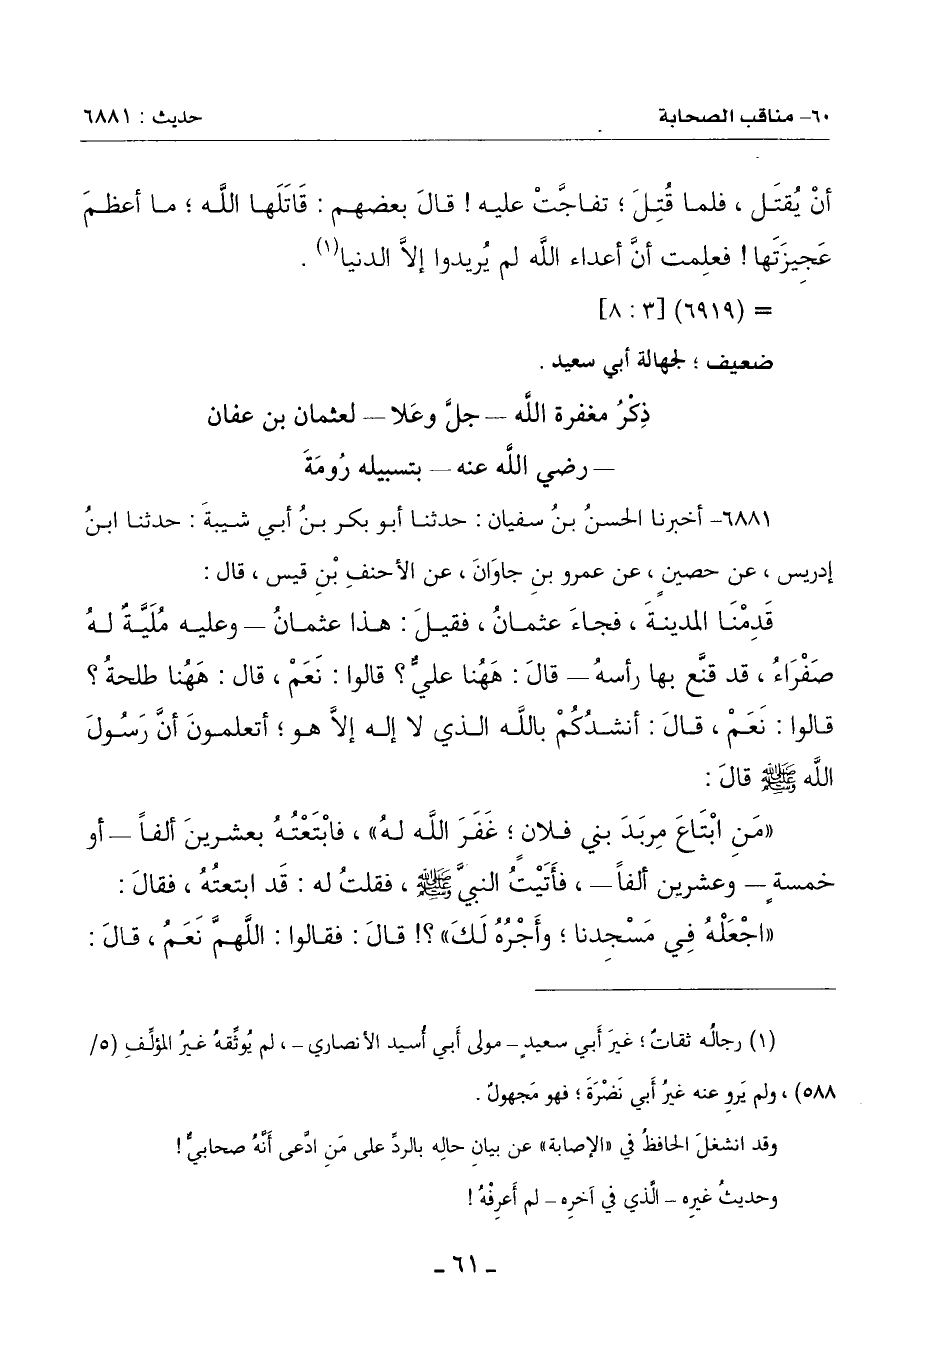 ٦٠- مناقب الصحابة حديث : ٦٨٨١
أنْ يُقتَل ، فلما قُتِلَ ؛ تفاجَّتْ عليه ! قالَ بعضهم : قَاتَلَها اللَّه ؛ ما أعظمَ
عَجِيزَتَها ! فعلِمت أنَّ أعداء اللَّه لم يُريدوا إلاَّ الدنيا(١) .
= (٦٩١٩) [٣ : ٨]
ضعيف ؛ لجهالة أبي سعيد .
ذِكْرُ مغفرة اللَّه – جلَّ وعَلا – لعثمان بن عفان
– رضي اللَّه عنه – بتسبيله رُومَةَ
٦٨٨١- أخبرنا الحسنُ بنُ سفيان : حدثنا أبو بكر بنُ أبي شيبةَ : حدثنا ابنُ
إدريس ، عن حصينٍ ، عن عمرو بنِ جاوَانَ ، عن الأحنفِ بْنِ قيس ، قال :
قَدِمْنَا المدينةَ ، فجاءَ عثمانُ ، فقيلَ : هذا عثمانُ – وعليه مُلَيَّةٌ لهُ
صَفْرَاءُ ، قد قنَّع بها رأسهُ – قالَ : هَهُنا عليٌّ ؟ قالوا : نَعَمْ ، قال : هَهُنا طلحةُ ؟
قالوا : نَعَمْ ، قالَ : أنشدُكُمْ باللَّه الذي لا إله إلاَّ هو ؛ أتعلمونَ أنَّ رَسُولَ
اللَّه ﷺ قالَ :
«مَنِ ابْتَاعَ مِربَدَ بني فلانٍ ؛ غَفَرَ اللَّه لهُ» ، فابْتَعْتُهُ بعشرينَ ألفاً – أو
خمسةٍ – وعشرين ألفاً – ، فأَتَيْتُ النبيَّ ﷺ ، فقلتُ له : قد ابتعتُهُ ، فقالَ :
«اجْعَلْهُ فِي مَسْجِدنا ؛ وأَجْرُهُ لَكَ» ؟! قالَ : فقالوا : اللَّهمَّ نَعَمُ ، قالَ :
(١) رجالُه ثقاتٌ ؛ غيرَ أَبي سعيدٍ – مولى أَبي أُسيد الأنصاري – ، لم يُوثِّقهُ غيرُ المؤلِّفِ (٥/
٥٨٨) ، ولم يَروِ عنه غيرُ أَبي نَضْرَةَ ؛ فهو مَجهولٌ .
وقد انشغلَ الحافظُ في «الإصابة» عن بيان حالِه بالردِّ على مَنِ ادَّعى أَنَّهُ صحابيٌّ !
وحديثُ غيرِه – الَّذي في آخرِه – لم أَعرِفْهُ !
ـ ٦١ ـ